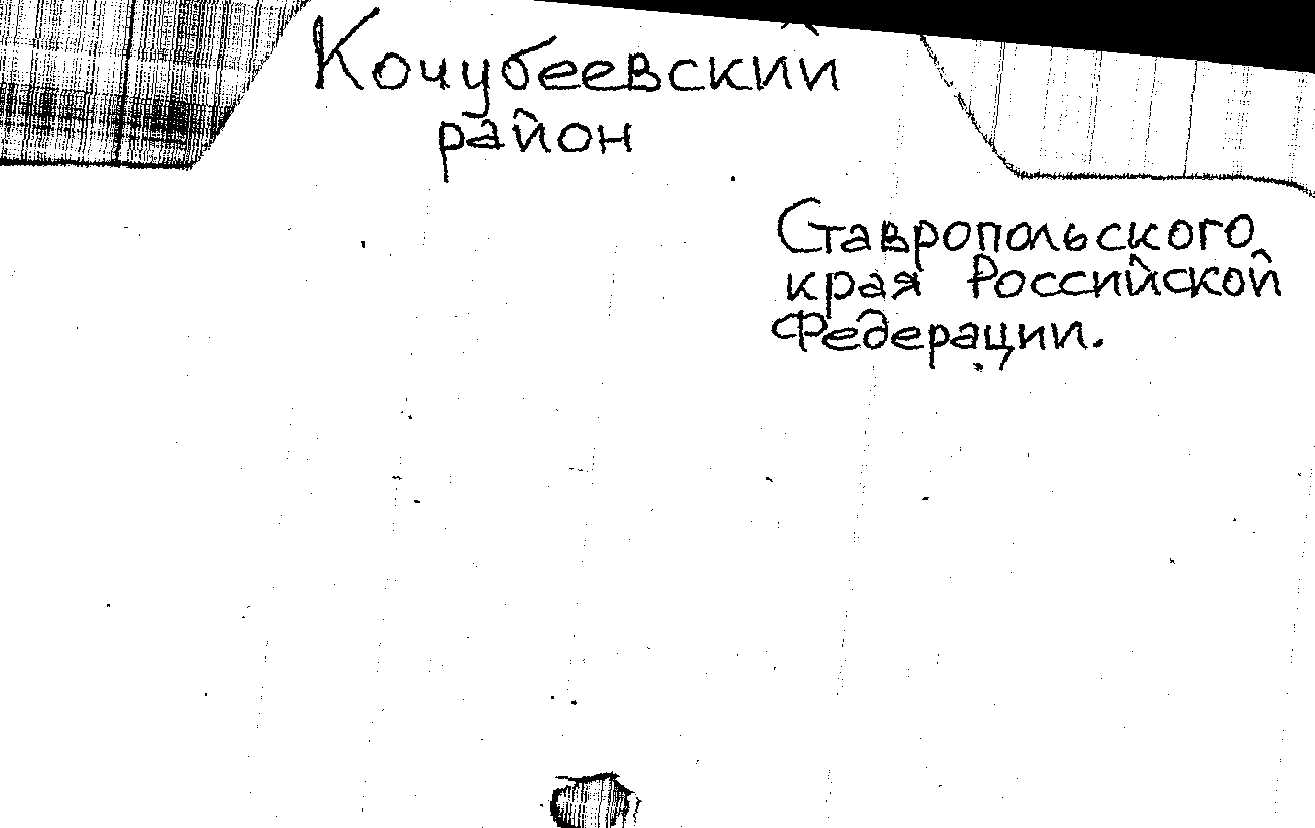 Кочубеевский
район
Ставропольского
края Российской
Федерации.